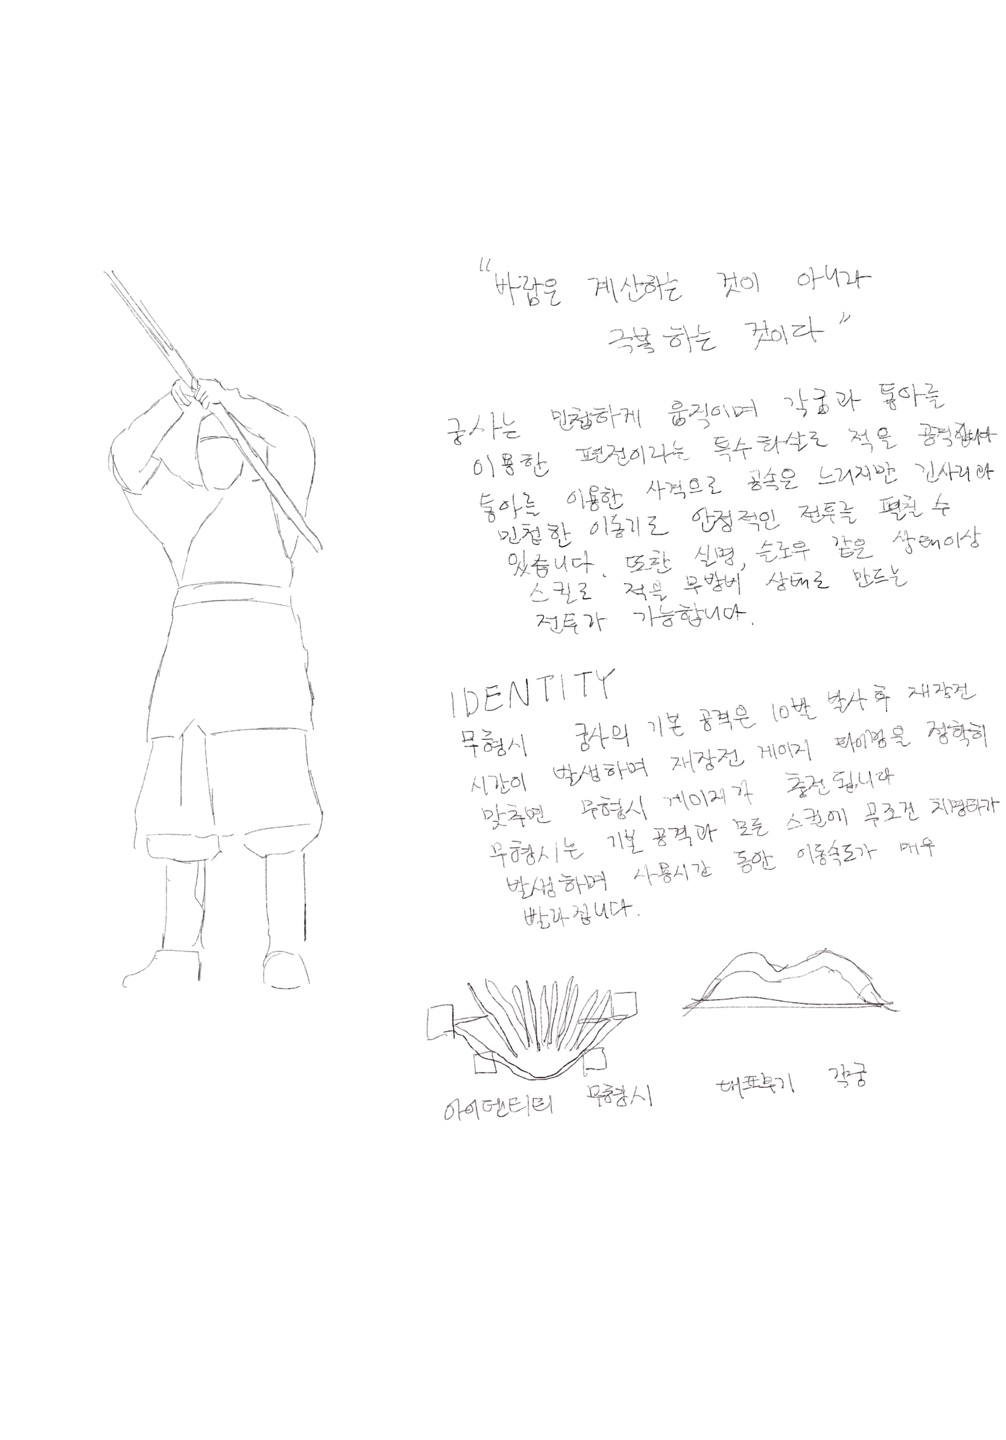 "바람은 계산하는 것이 아니라
극복하는 것이다"
궁사는 민첩하게 움직이며 각궁과 통아를
이용한 편전이라는 특수화살로 적을 공격합니다
통아를 이용한 사격으로 공속은 느리지만 긴사리과
민첩한 이동기로 안정적인 전투를 펼칠 수
있습니다. 또한 실명, 슬로우 같은 상태이상
스킬로 적을 무방비 상태로 만드는
전투가 가능합니다.
IDENTITY
무형시 궁사의 기본 공격은 10발 발사 후 재장전
시간이 발생하며 재장전 게이지 타이밍을 정확히
맞추면 무형시 게이지가 충전됩니다
무형시는 기본 공격과 모든 스킬에 무조건 치명타가
발생하며 사용시간 동안 이동속도가 매우
빨라집니다.
아이덴티티 무형시
대표무기 각궁